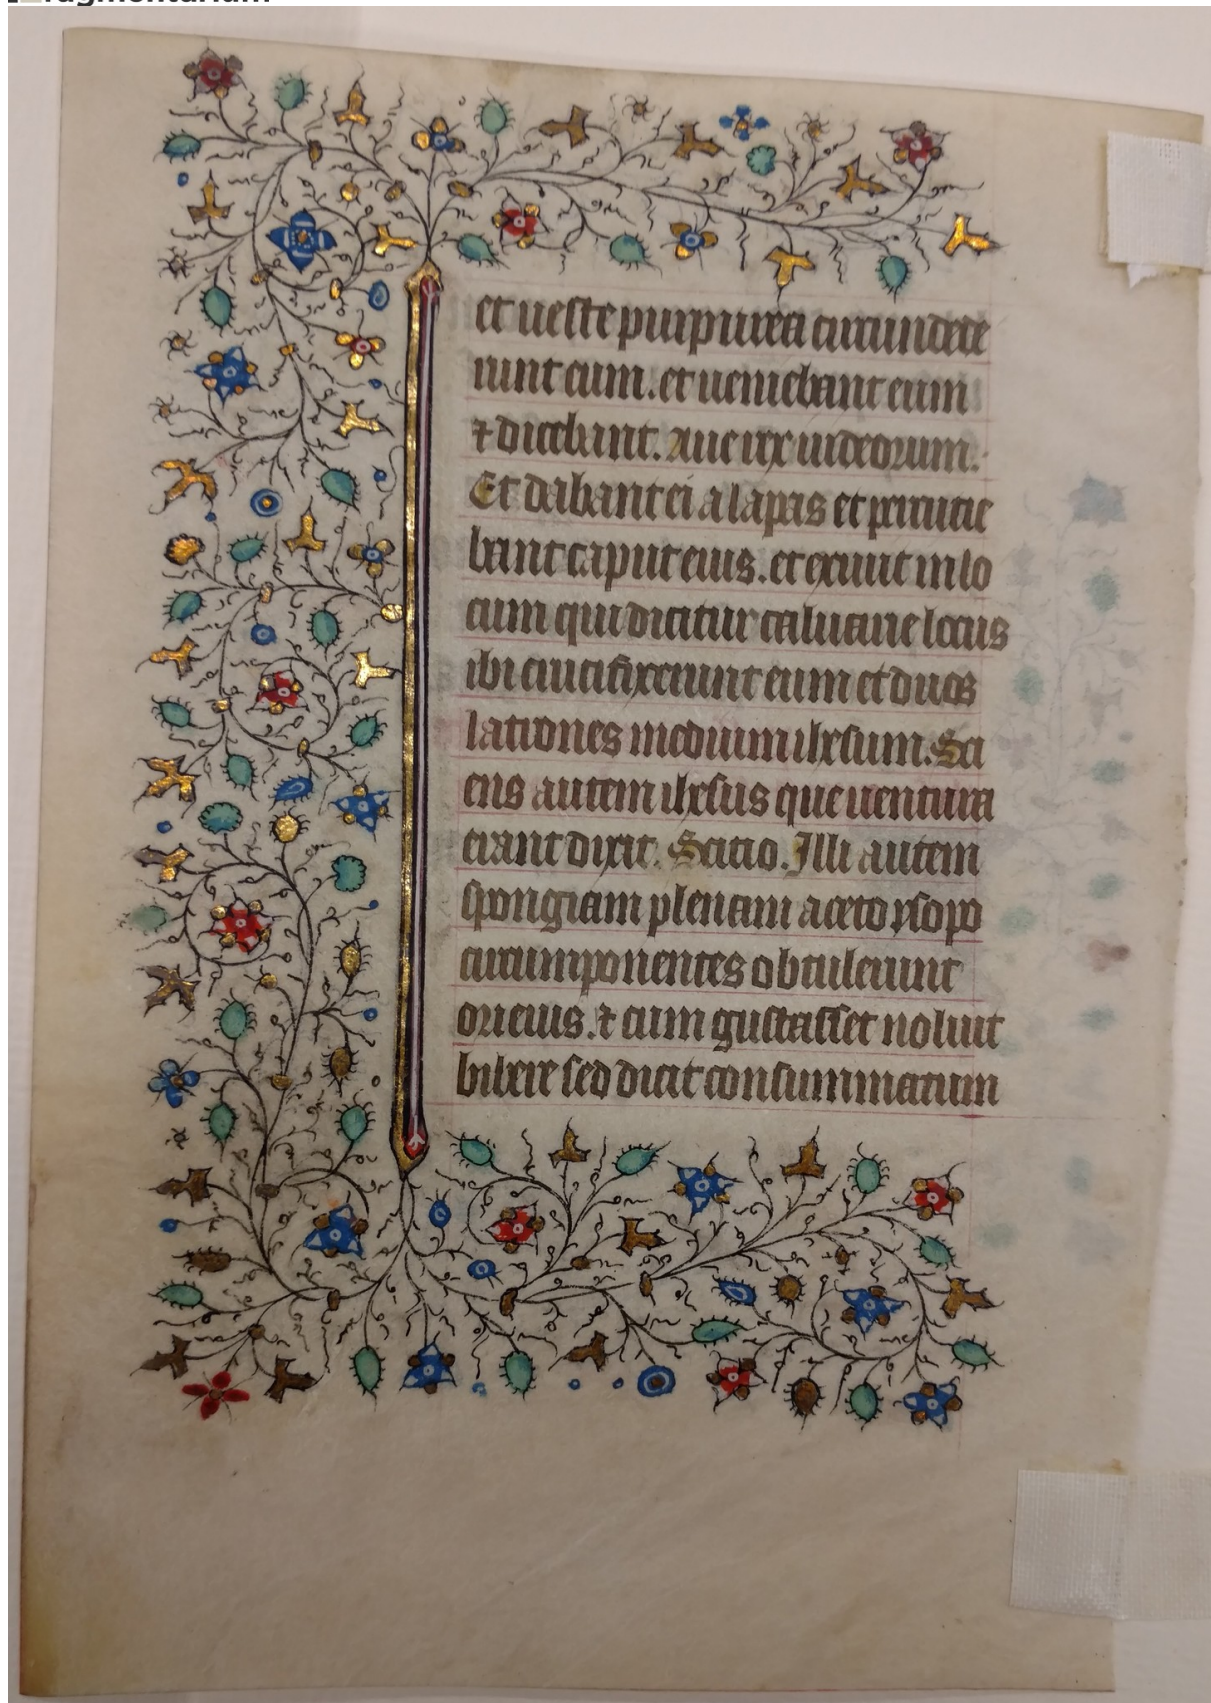 fragmentarium
et ueste purpurea circumdede
runt eum. et ueniebant eum
⁊ dicebant. Aue rex iudeorum.
Et dabant ei alapas et percucie
bant caput eius. et exiuit in lo
cum qui dicitur caluarie locus
ibi crucifixerunt eum et duos
latrones medium ihesum. Sci
ens autem ihesus que uentura
erant dixit. Scicio. Illi autem
spongiam plenam aceto ysopo
circumponentes obtulerunt
ori eius. ⁊ cum gustasset noluit
bibere sed dicit consummatum